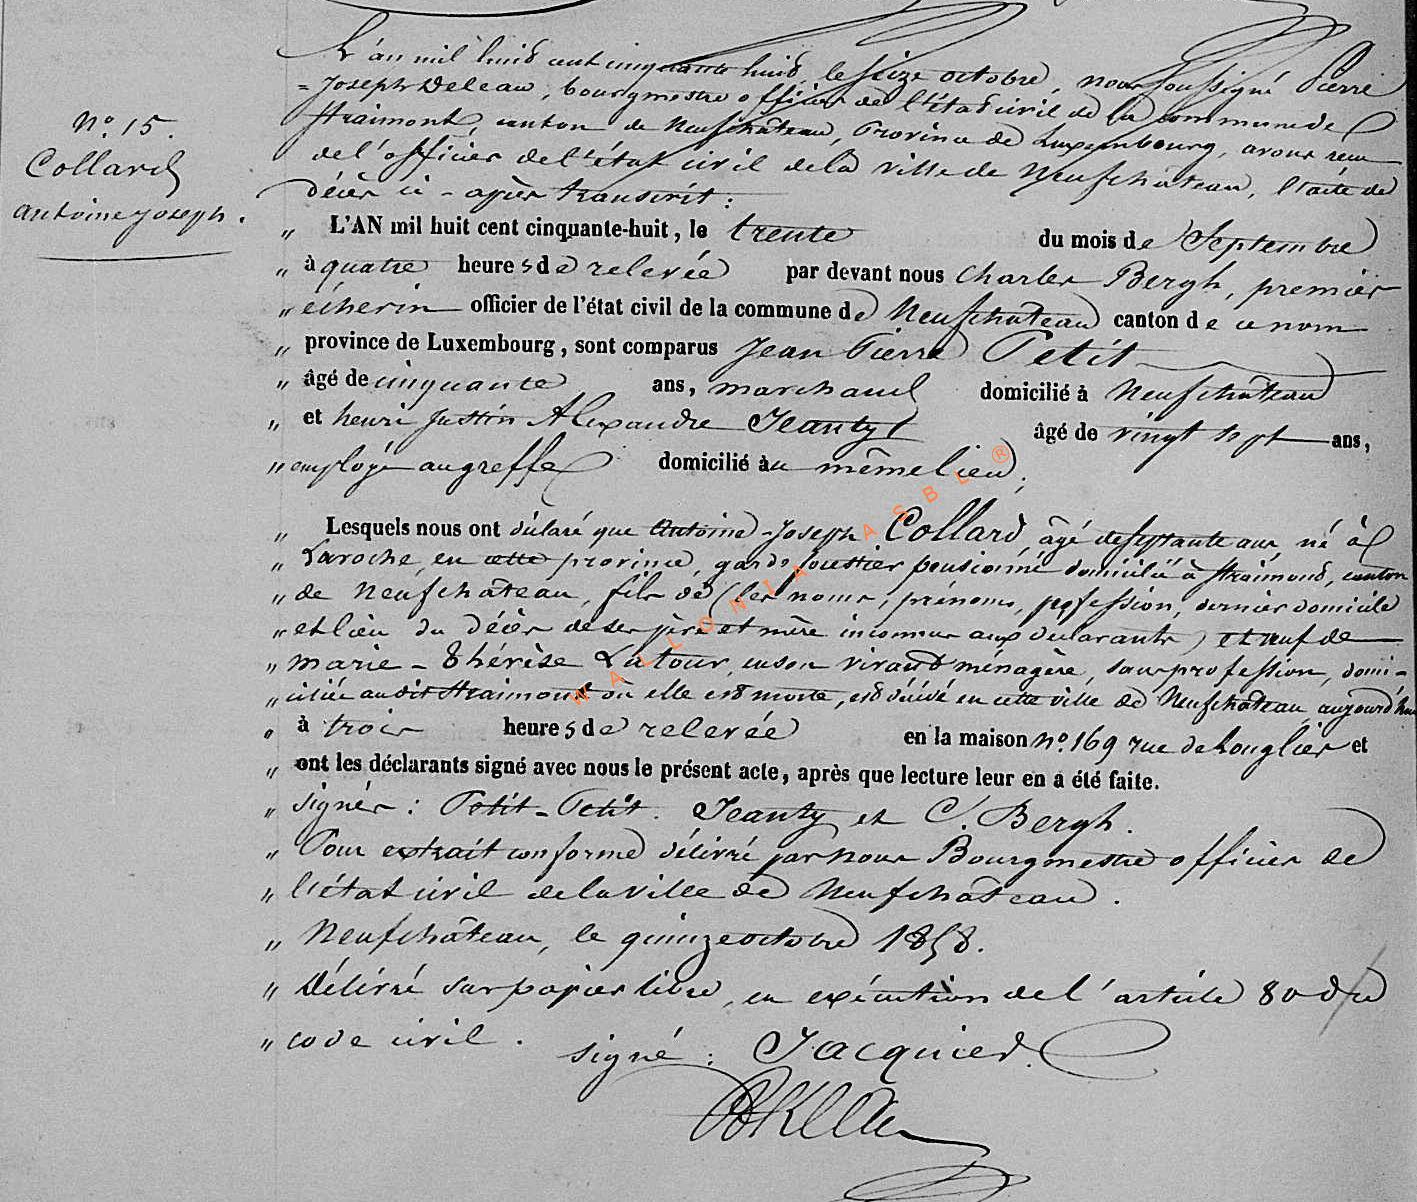 N° 15.
Collard
Antoine Joseph.
L'an mil huit cent cinquante huit, le seize octobre, nous soussigné Pierre
= Joseph Deleau, bourgmestre officier de l'état civil de la commune de
Straimont, canton de Neufchâteau, Province de Luxembourg, avons reçu
de l'officier de l'état civil de la ville de Neufchâteau, l'acte de
décès ci-après transcrit :
" L'AN mil huit cent cinquante-huit, le trente du mois de Septembre
" à quatre heures de relevée par devant nous Charles Bergh, premier
" échevin officier de l'état civil de la commune de Neufchâteau canton de ce nom
" province de Luxembourg, sont comparus Jean Pierre Petit
" âgé de cinquante ans, marchand domicilié à Neufchâteau
" et henri Justin Alexandre Jeanty âgé de vingt sept ans,
" employé au greffe domicilié au même lieu ;
" Lesquels nous ont déclaré que Antoine-Joseph Collard âgé de septante ans, né à
" Laroche, en cette province, garde forestier pensionné domicilié à Straimont, canton
" de Neufchâteau, fils de (les noms, prénoms, profession, dernier domicile
" et lieu du décès de ses père et mère inconnus aux déclarants) et veuf de
" marie-Thérèse Latour, en son vivant ménagère, sans profession, domi-
" ciliée au dit Straimont où elle est morte, est décédé en cette ville de Neufchâteau, aujourd'hui
" à trois heures de relevée en la maison n° 169 rue de Longlier et
" ont les déclarants signé avec nous le présent acte, après que lecture leur en a été faite.
" signés : Petit-Petit. Jeanty et C. Bergh.
" Pour extrait conforme délivré par nous Bourgmestre officier de
" l'état civil de la ville de Neufchâteau.
" Neufchâteau, le quinze octobre 1858.
" Délivré sur papier libre, en exécution de l'article 80 du
" code civil. signé : Jacquier.
WALLONIA ASBL ®